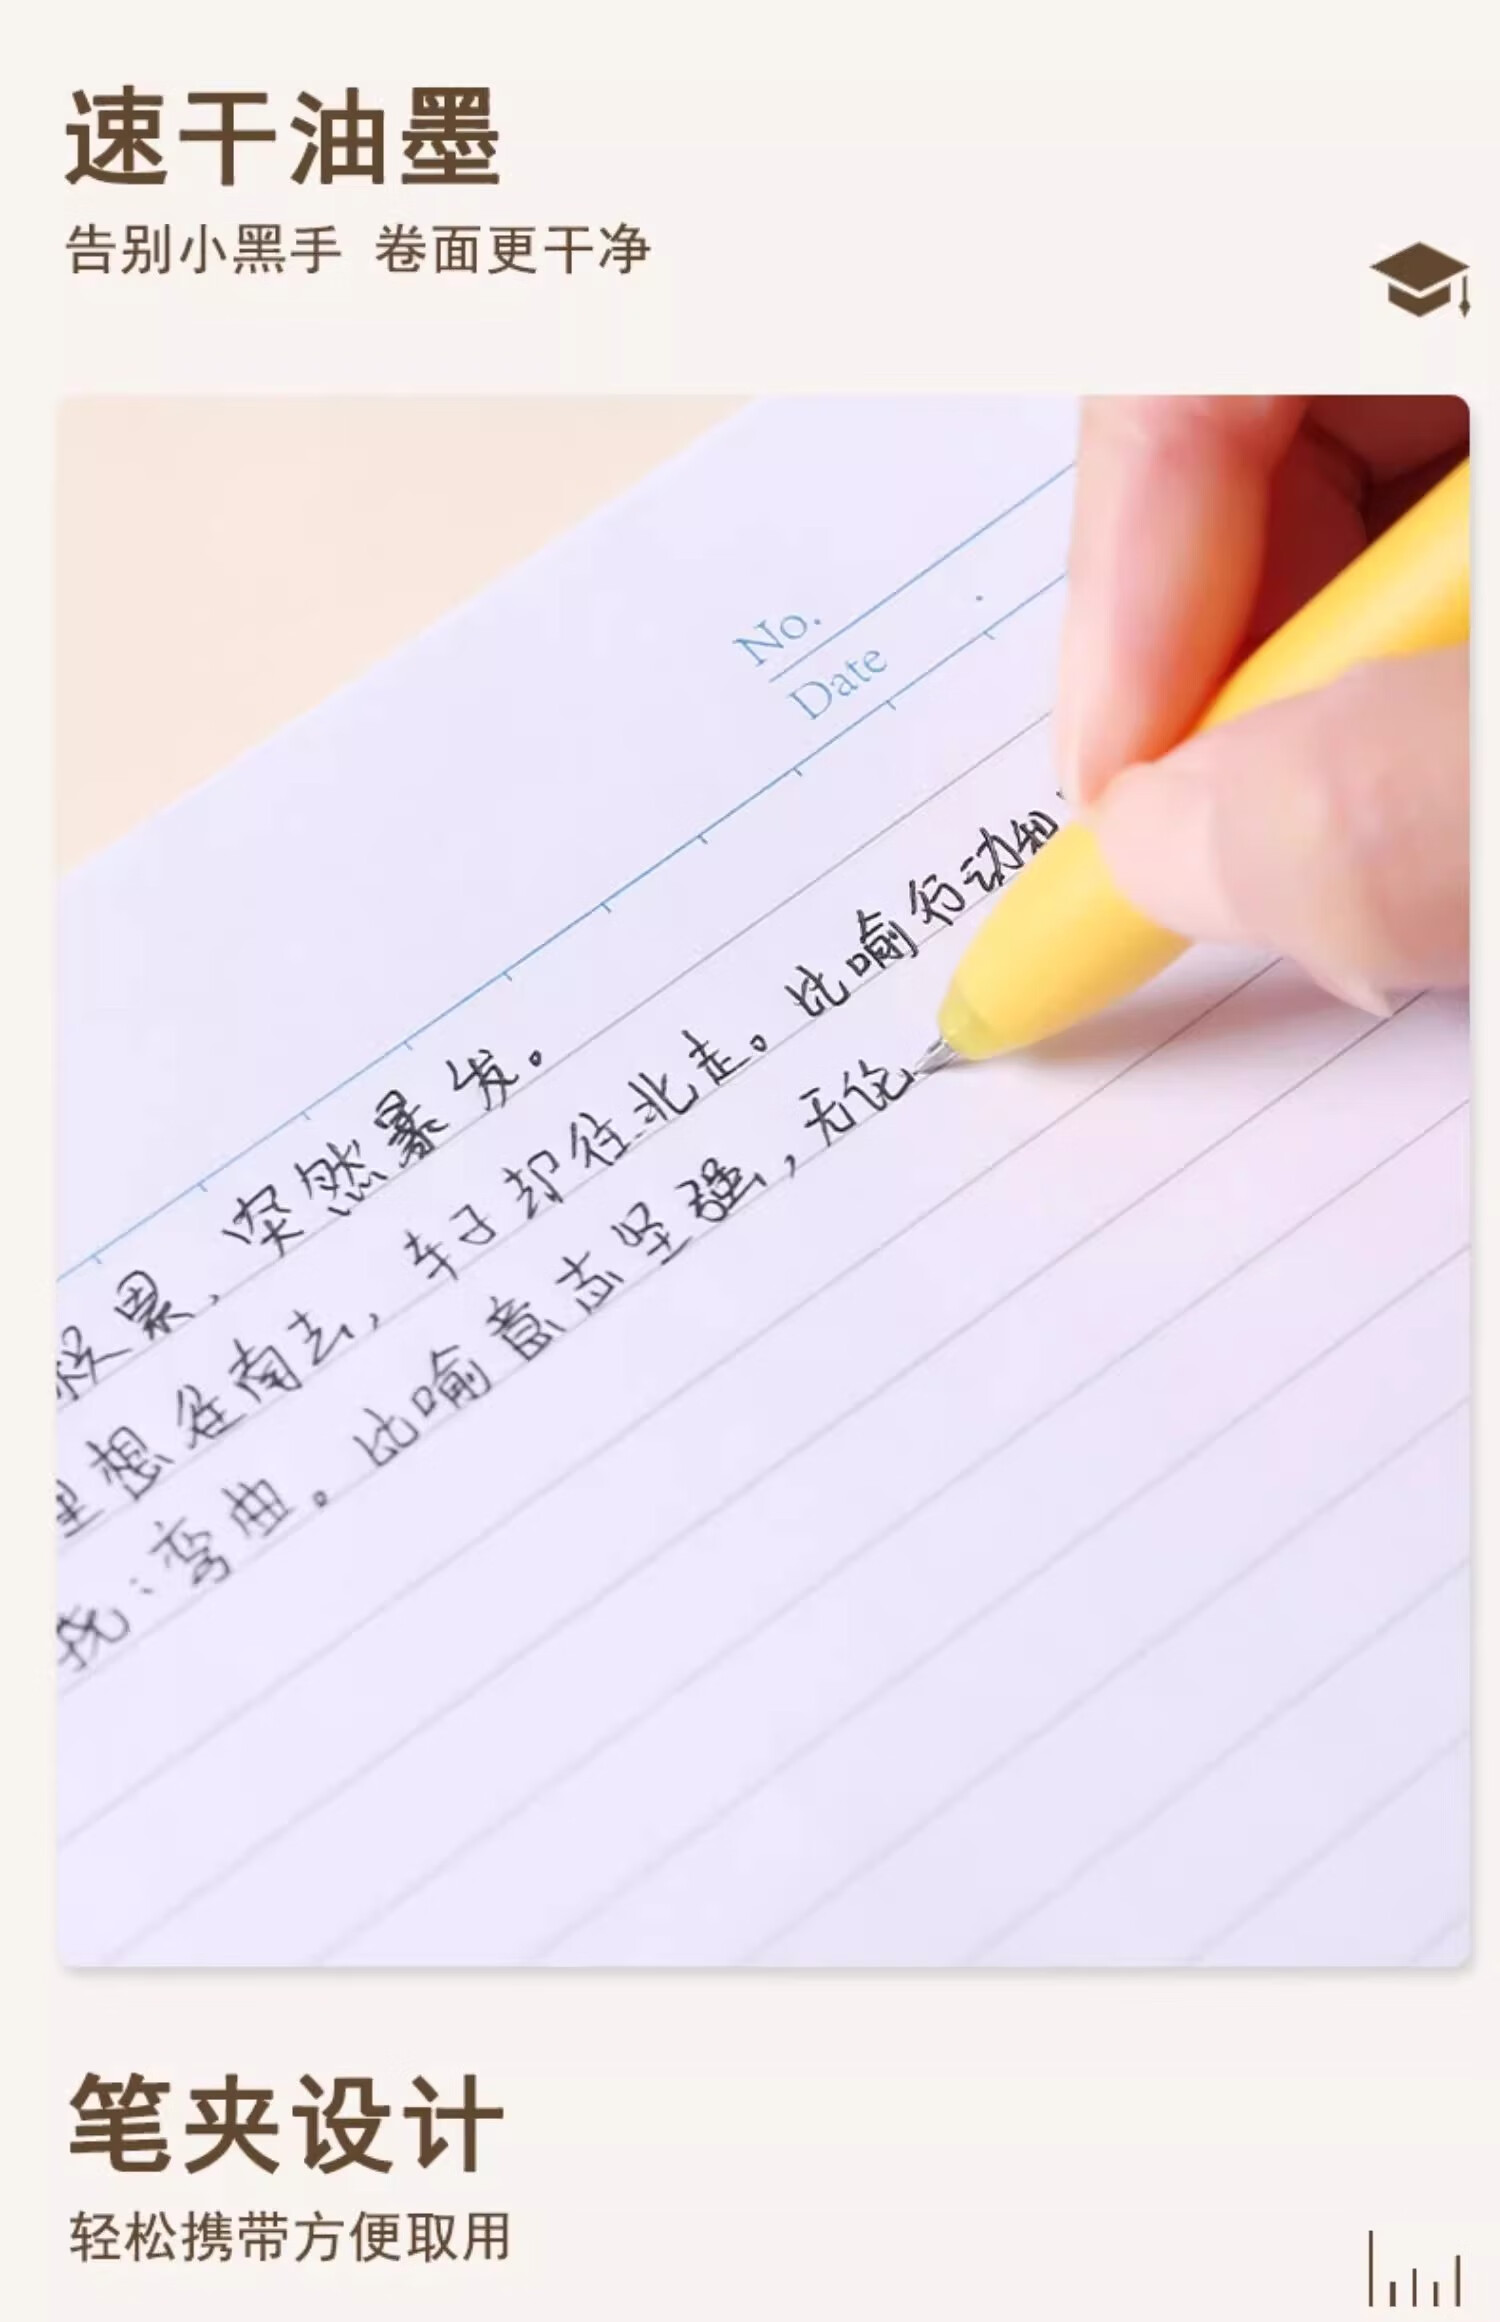 速干油墨
告别小黑手 卷面更干净
No.
Date
累、突然暴发。
想往南去,车子却往北走。比喻行动和
挠:弯曲。比喻意志坚强,无论
笔夹设计
轻松携带方便取用